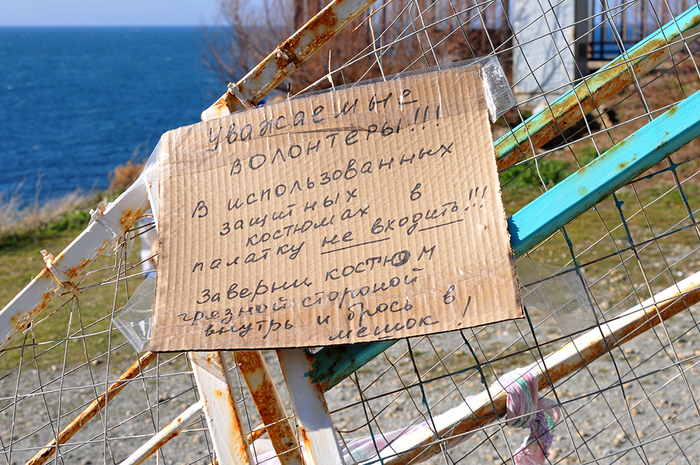 Уважаемые
волонтеры!!!
В использованных
защитных в
костюмах в
палатку не входить!!!
Заверни костюм
грезной стороной
внутрь и брось в
мешок!